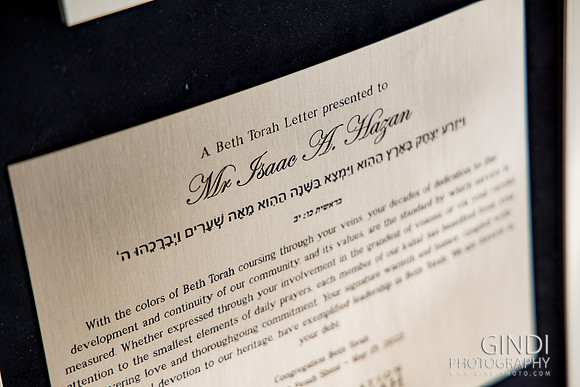 A Beth Torah Letter presented to
Mr Isaac A. Hazan
וַיִּזְרַע יִצְחָק בָּאָרֶץ הַהִוא וַיִּמְצָא בַּשָּׁנָה הַהִוא מֵאָה שְׁעָרִים וַיְבָרְכֵהוּ ה'
בראשית כו: יב
With the colors of Beth Torah coursing through your veins, your decades of dedication to the
development and continuity of our community, and its values, are the standard by which service is
measured. Whether expressed through your involvement in the grandest of visions, or via your careful
attention to the smallest elements of daily prayers, each member of our kahal has benefitted from your
love and thoroughgoing commitment. Your signature warmth and humor, coupled with
devotion to our heritage, have exemplified leadership at Beth Torah. We are forever in
your debt.
Congregation Beth Torah
GINDI
PHOTOGRAPHY